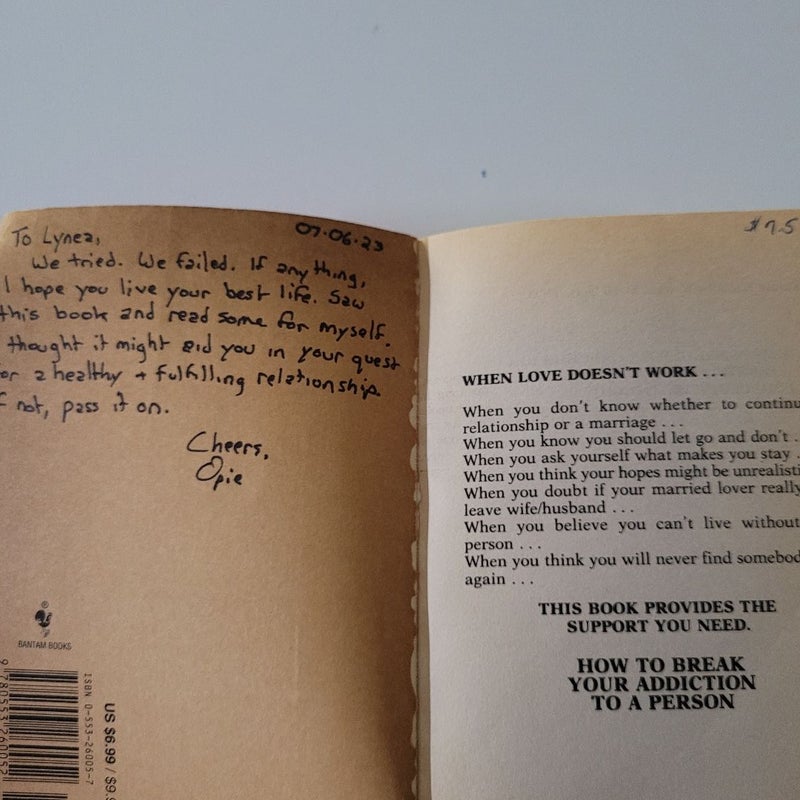 07.06.23
To Lynea,
We tried. We failed. If anything,
I hope you live your best life. Saw
this book and read some for myself.
thought it might aid you in your quest
or a healthy + fulfilling relationship.
f not, pass it on.
Cheers,
Opie
BANTAM BOOKS
ISBN 0-553-26005-7
9 780553 260052
US $6.99 / $9.9
$7.5
WHEN LOVE DOESN'T WORK . . .
When you don't know whether to continu
relationship or a marriage . . .
When you know you should let go and don't .
When you ask yourself what makes you stay .
When you think your hopes might be unrealisti
When you doubt if your married lover really
leave wife/husband . . .
When you believe you can't live without
person . . .
When you think you will never find somebod
again . . .
THIS BOOK PROVIDES THE
SUPPORT YOU NEED.
HOW TO BREAK
YOUR ADDICTION
TO A PERSON